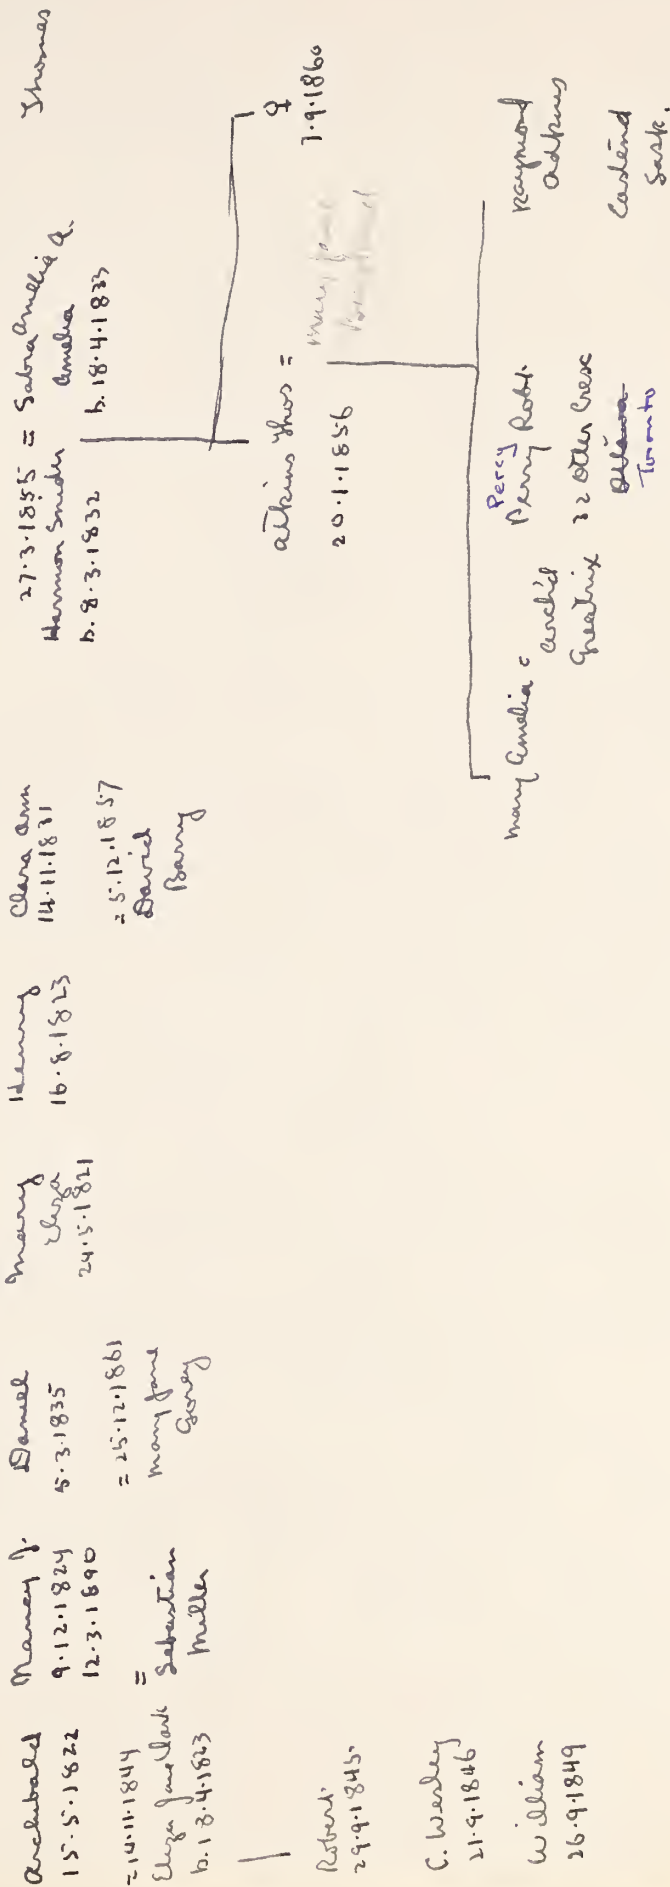 Archibald
15.5.1822
= 14.11.1844
Eliza Jane Clark
b. 18.4.1823
Robert
29.9.1845
C. Wesley
21.9.1846
William
26.9.1849
Nancy J.
9.12.1824
12.3.1890
=
Sebastian
Miller
Daniel
5.3.1835
= 25.12.1861
Mary Jane
Gorey
Mary
Eliza
24.5.1821
Henry
16.8.1823
Clara Ann
14.11.1831
= 5.12.1857
David
Barry
27.3.1855
Harmon Snider = Sabra Amelia A.
Amelia
b. 8.3.1832
b. 18.4.1833
Thomas
Atkins Thos =
20.1.1856
Mary Jane
♀
7.9.1860
Mary Amelia =
Archid
Greatrix
Percy
Perry Robt.
32 Otter Cresc
Ottawa
Toronto
Raymond
Adkins
Eastend
Sask.